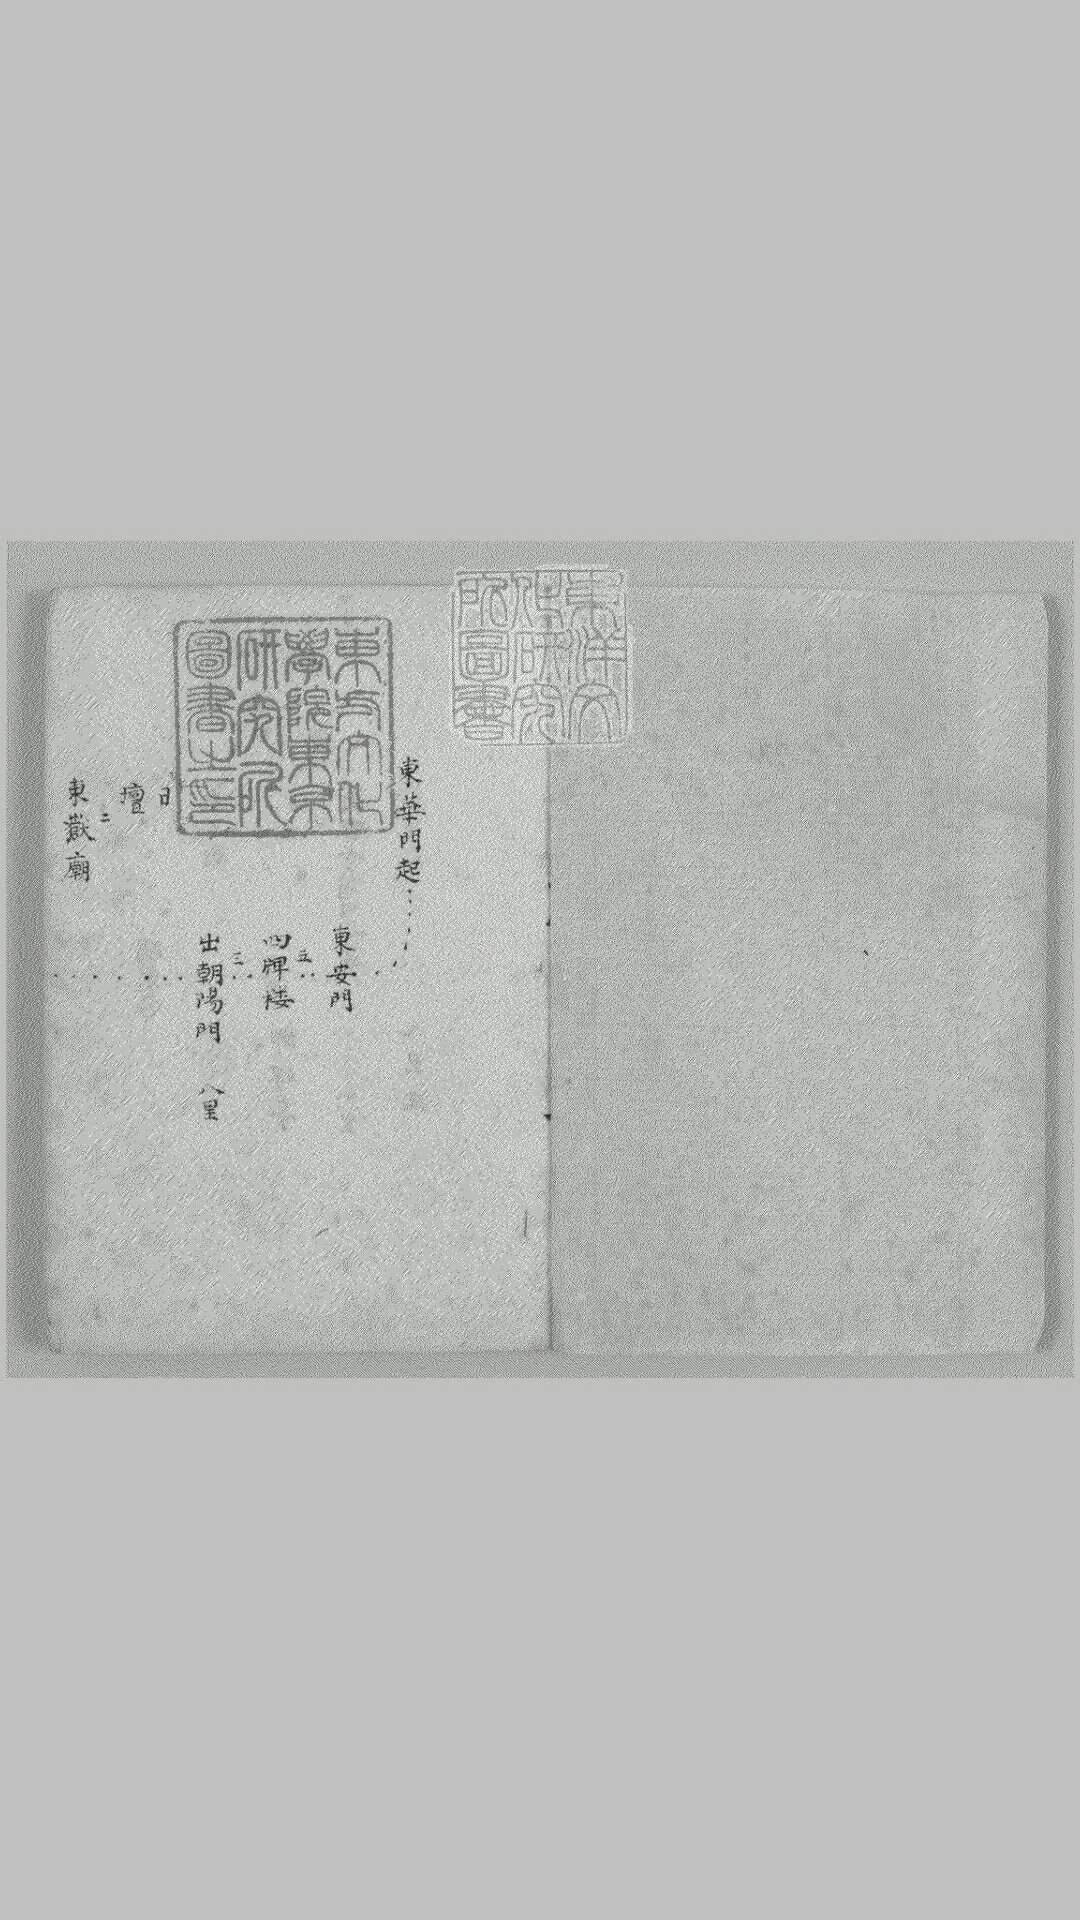 東洋文
化研究
所圖書
東方文化
學院東京
研究所
圖書之印
東華門起
東安門
五
四牌楼
三
出朝陽門 八里
日
壇
二
東嶽廟